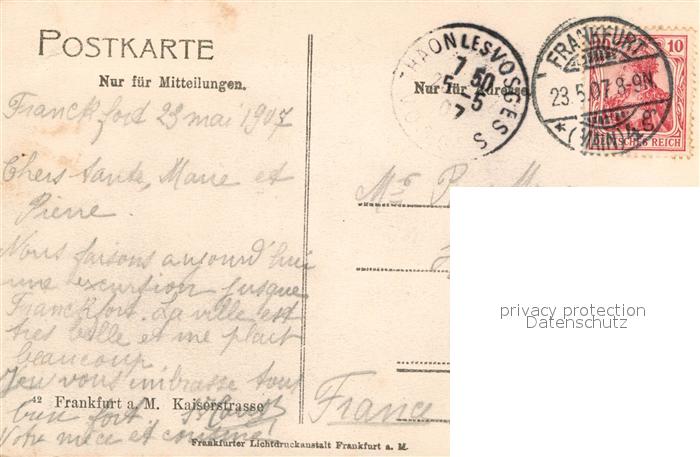 POSTKARTE
Nur für Mitteilungen.
Nur für Adresse.
LESVOSGES
7 50
25-5
07
FRANKFURT
23.5.07.8-9N.
* (MAIN)
10
DEUTSCHES REICH
Franckfort 23 mai 1907
Chers tante, Marie et
Pierre.
Nous faisons aujourd'hui
une excursion jusque
Franckfort. La ville est
très belle et me plait
beaucoup.
vous imbrasse tous
bien fort
Votre nièce et
Mr
France
42 Frankfurt a. M. Kaiserstrasse
Frankfurter Lichtdruckanstalt Frankfurt a. M.
privacy protection
Datenschutz